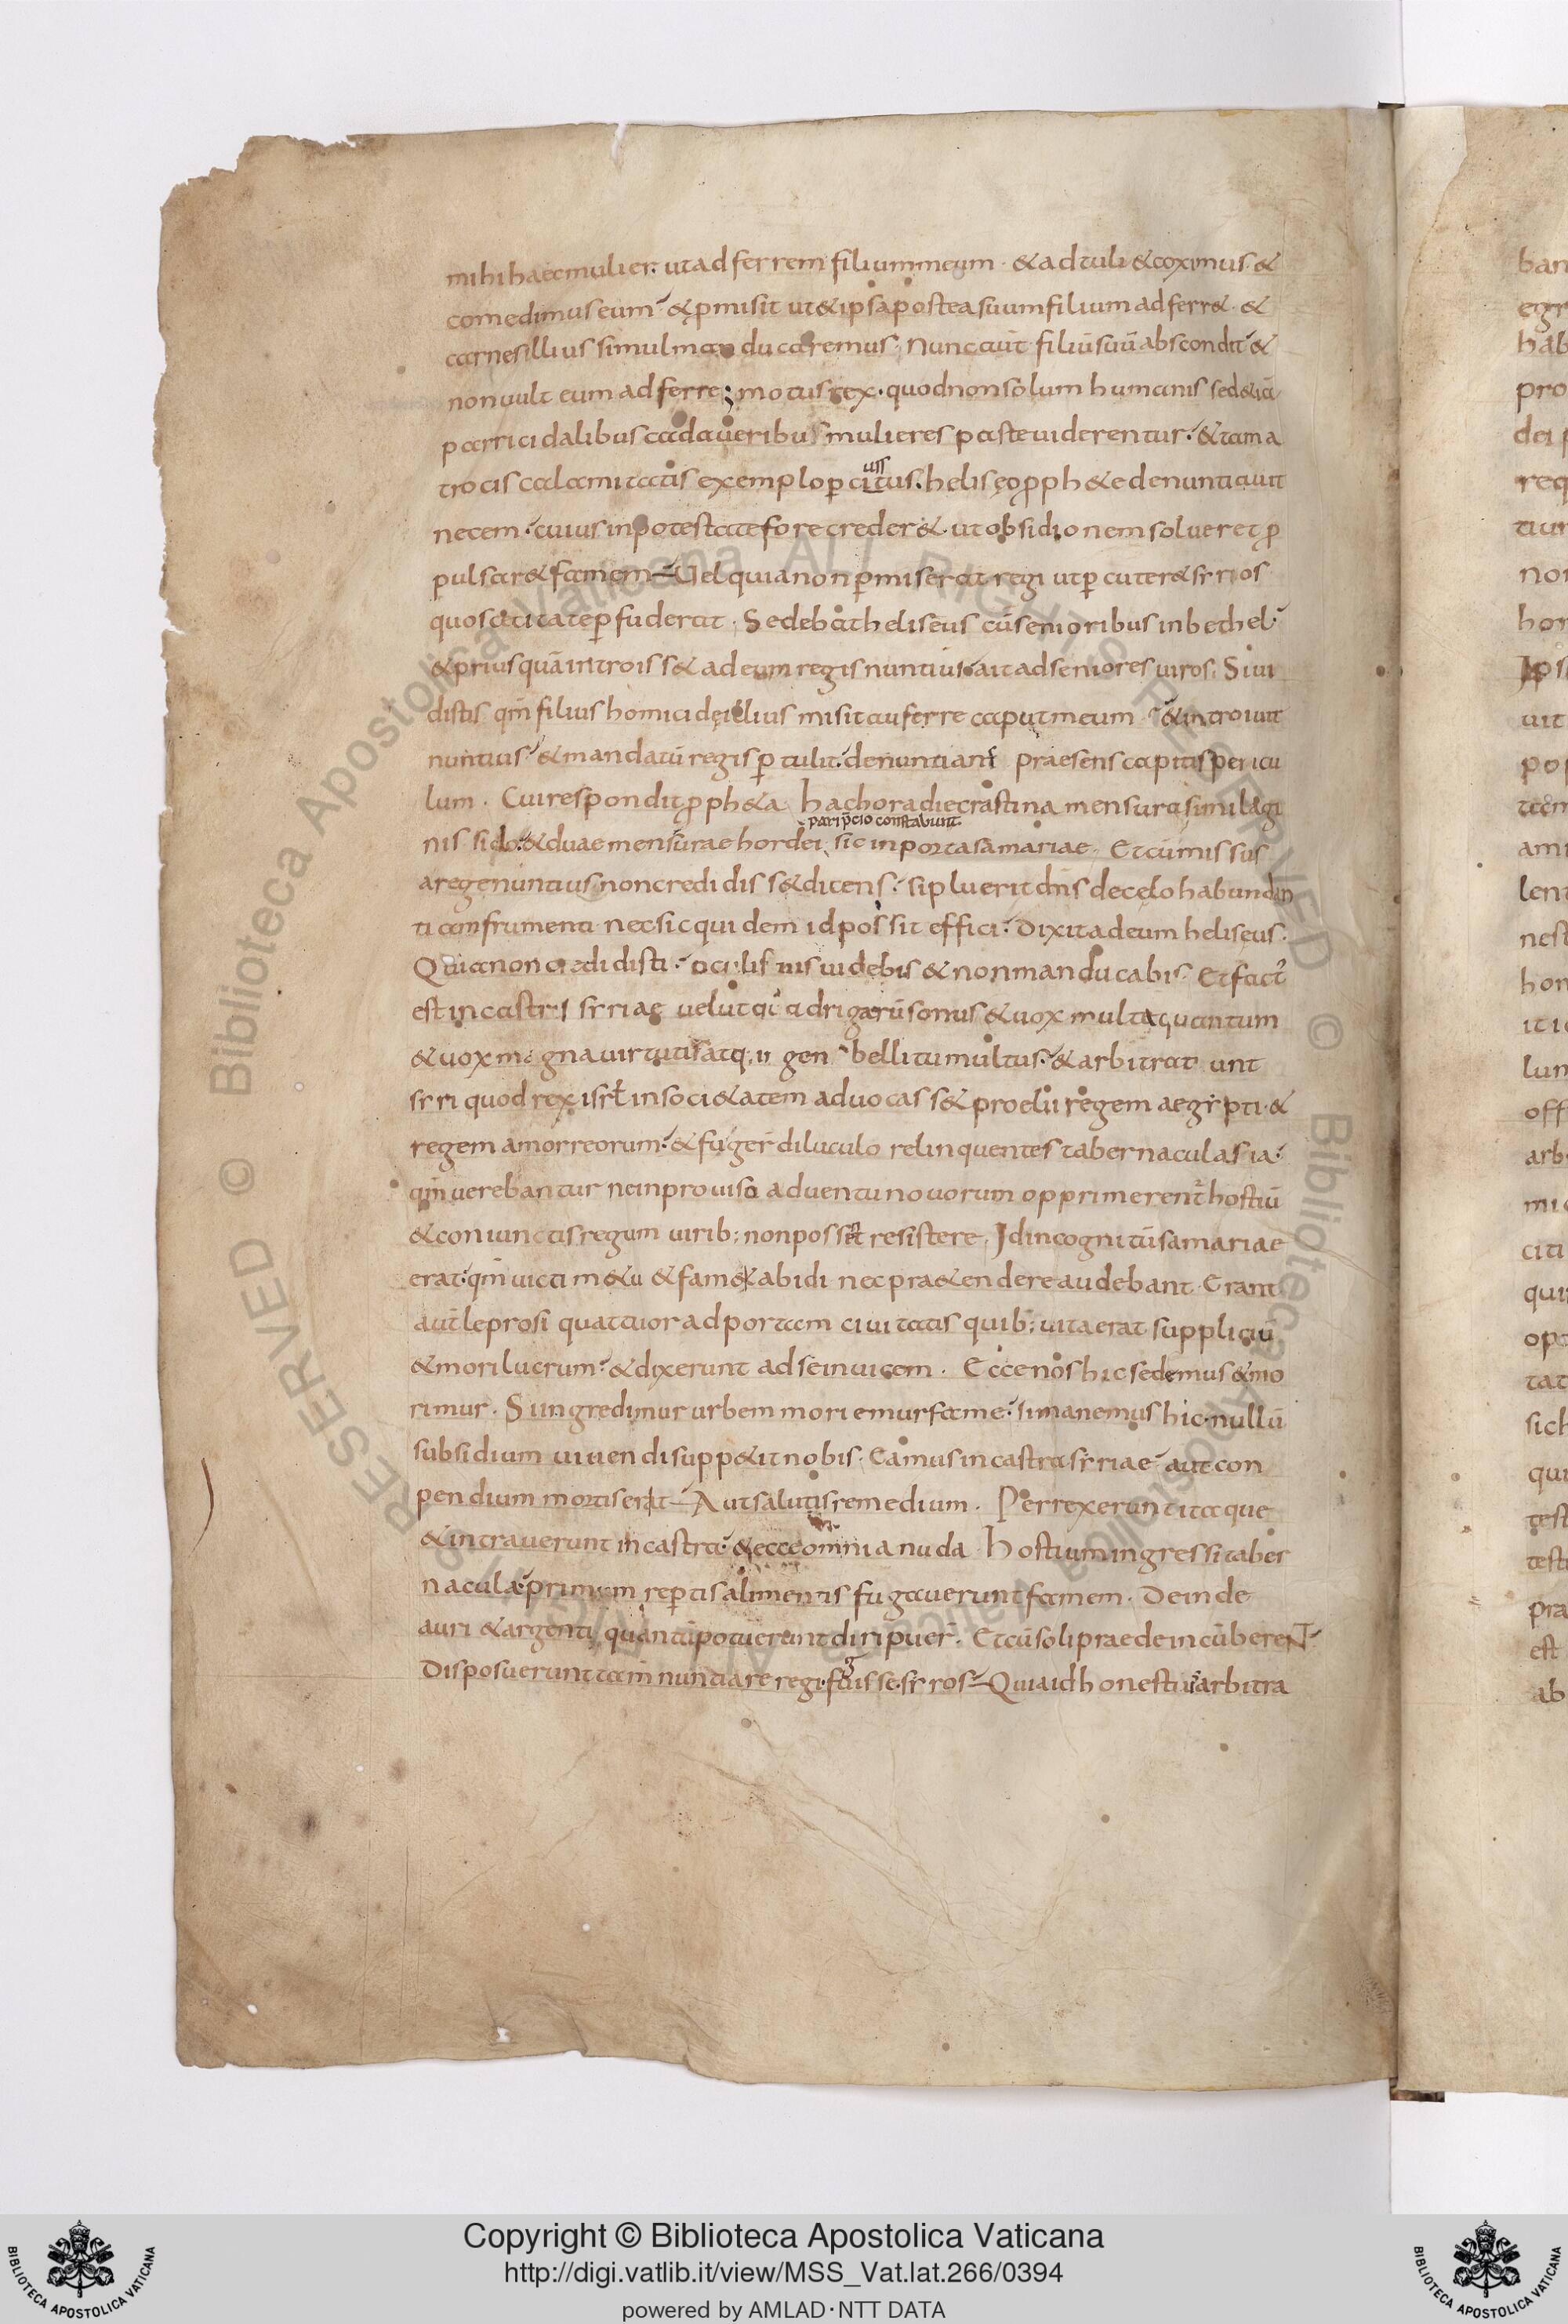 mihi haec mulier. ut adferrem filium meum. & adtuli & coximus. &
comedimus eum. & p̱misit ut & ipsa postea suum filium adferr&. &
carnes illius simul manducaremus. Nunc aūt filiū suū abscondit. &
non uult eum adferre; motus rex. quod non solum humanis sed &iā
parricidalibus cadaueribus mulieres paste uiderentur. & tam a
trocis calamitatis exemplo p̄citus. heliseo p̱ph&e denuntiauit
necem. cuius in potestate fore creder&. ut obsidionem solueret p̱
pulsar& famem. Uel quia non p̄miserat regi ut p̄cuter& syrios
quos cecitate p̄fuderat. Sedebat heliseus cū senioribus in bethel.
& prius quā introiss& ad eum regis nuntius. ait ad seniores uiros. Si ui
distis qm̄ filius homicidę illius misit auferre caput meum. & introiuit
nuntius. & mandatū regis p̄tulit. denuntians praesens capitis pericu
lum. Cui respondit p̱ph&a hac hora die crastina mensura similagi
pari p̄cio constabunt
nis siclo. & duae mensurae hordei sic in porta samariae. Et cū missus
a rege nuntius non credidiss& dicens. si pluerit dn̄s de celo habundan
tiam frumenti nec sic quidem id possit effici. Dixit ad eum heliseus.
Quia non credidisti. oculis tuis uidebis & non manducabis. Et factū
est in castris syriae uelut quadrigarū sonus & uox multa equantum
& uox magna uirtutis atq; ingens belli tumultus. & arbitrati sunt
syri quod rex isrł in soci&atem aduocass& proelii regem aegypti. &
regem amorreorum. & fuger̄ diluculo relinquentes tabernacula sua.
qm̄ uerebantur ne inprouiso aduentu nouorum opprimerent̄ hostiū
& coniunctis regum uirib; non possent resistere. Id incognitū samariae
erat. qm̄ uicti m&u & fame tabidi nec pra&endere audebant. Erant
aūt leprosi quattuor ad portam ciuitatis quib; uita erat suppliciū
& mori lucrum. & dixerunt ad se inuicem. Ecce nos hic sedemus & mo
rimur. Si ingredimur urbem moriemur fame. si manemus hic. nullū
subsidium uiuendi supp&it nobis. Eamus in castra syriae. aut con
pendium mortis erit. Aut salutis remedium. Perrexerunt itaque
& intrauerunt in castra. & ecce omnia nuda hostium ingressi taber
nacula. primum rep̄tis alimentis fugauerunt famem. Deinde
auri & argenti quantū potuerunt diripuer̄. Et cū soli praede incūberent.
Disposuerunt tam̄ nuntiare regi. fugisse. syros. Quia id honestius arbitra
Copyright © Biblioteca Apostolica Vaticana
http://digi.vatlib.it/view/MSS_Vat.lat.266/0394
powered by AMLAD·NTT DATA